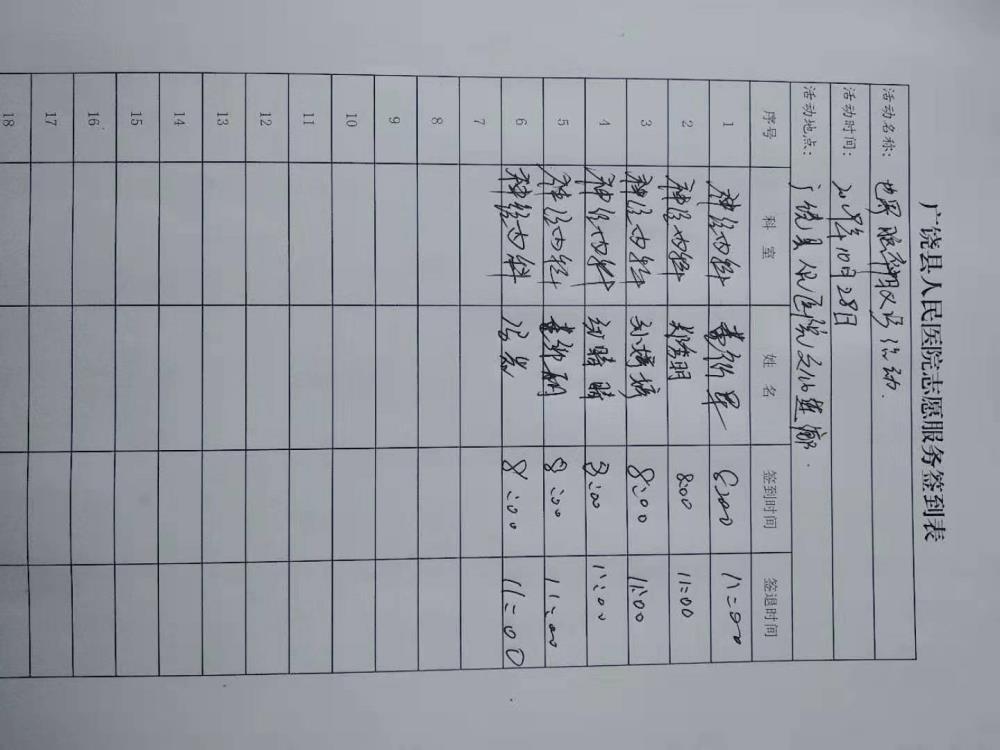 广饶县人民医院志愿服务签到表
活动名称: 世界脑卒中义诊活动.
活动时间: 10月28日
活动地点: 广饶县人民医院文化连廊.
序号 科室 姓名 签到时间 签退时间
1 神经内科 8:00 11:00
2 神经内科 8:00 11:00
3 神经内科 8:00 11:00
4 神经内科 8:00 11:00
5 神经内科 8:00 11:00
6 神经内科 8:00 11:00
7
8
9
10
11
12
13
14
15
16
17
18